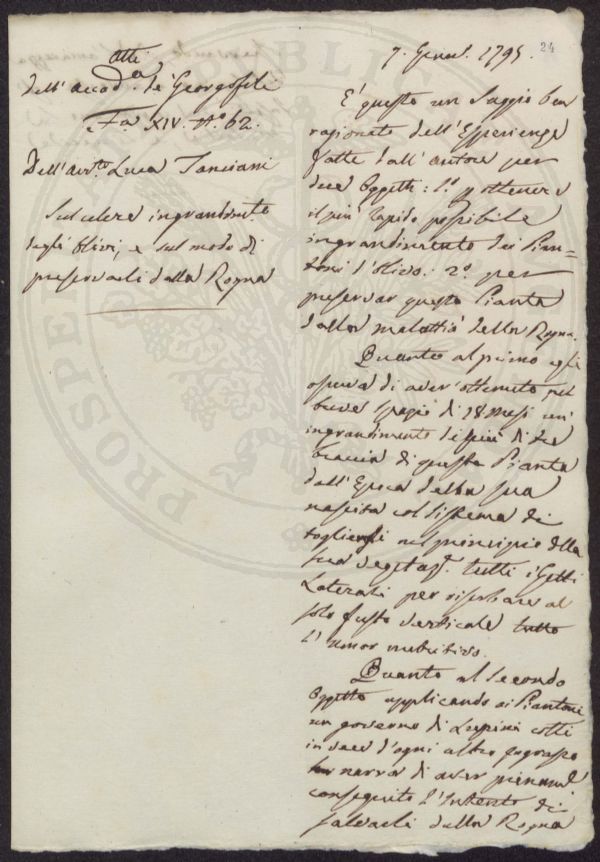 Atti
dell'Accad.a de' Georgofili
Fa XIV. N.o 62.
Dell'Avv.to Luca Tanciani
Sul celere ingrandimto
degli Olivi, e sul modo di
preservarli dalla Rogna
7. Genn. 1795.
24
E' questo un Saggio ben
ragionato dell'Esperienze
fatte dall'autore per
due Oggetti: 1.o p ottenere
il più rapido possibile
ingrandimento dei Pian=
toni d'Olivo. 2.o per
preservar questa Pianta
dalla malattia della Rogna.
Quanto al primo egli
di aver ottenuto nel
breve spazio di 18 Mesi un'
ingrandimento di più di due
braccia di questa Pianta
dall'Epoca della sua
nascita col sistema di
toglierli nel principio della
sua vegetaz.e tutti i Getti
Laterali per riserbare al
solo fusto verticale tutto
l'umor nutritivo.
Quanto al secondo
Oggetto applicando ai Piantoni
un governo di Lupini cotti
in vece d'ogni altro ingrasso
narra di aver pienam.e
conseguito l'Intento di
salvarli dalla Rogna
PROSPER
PUBLIC